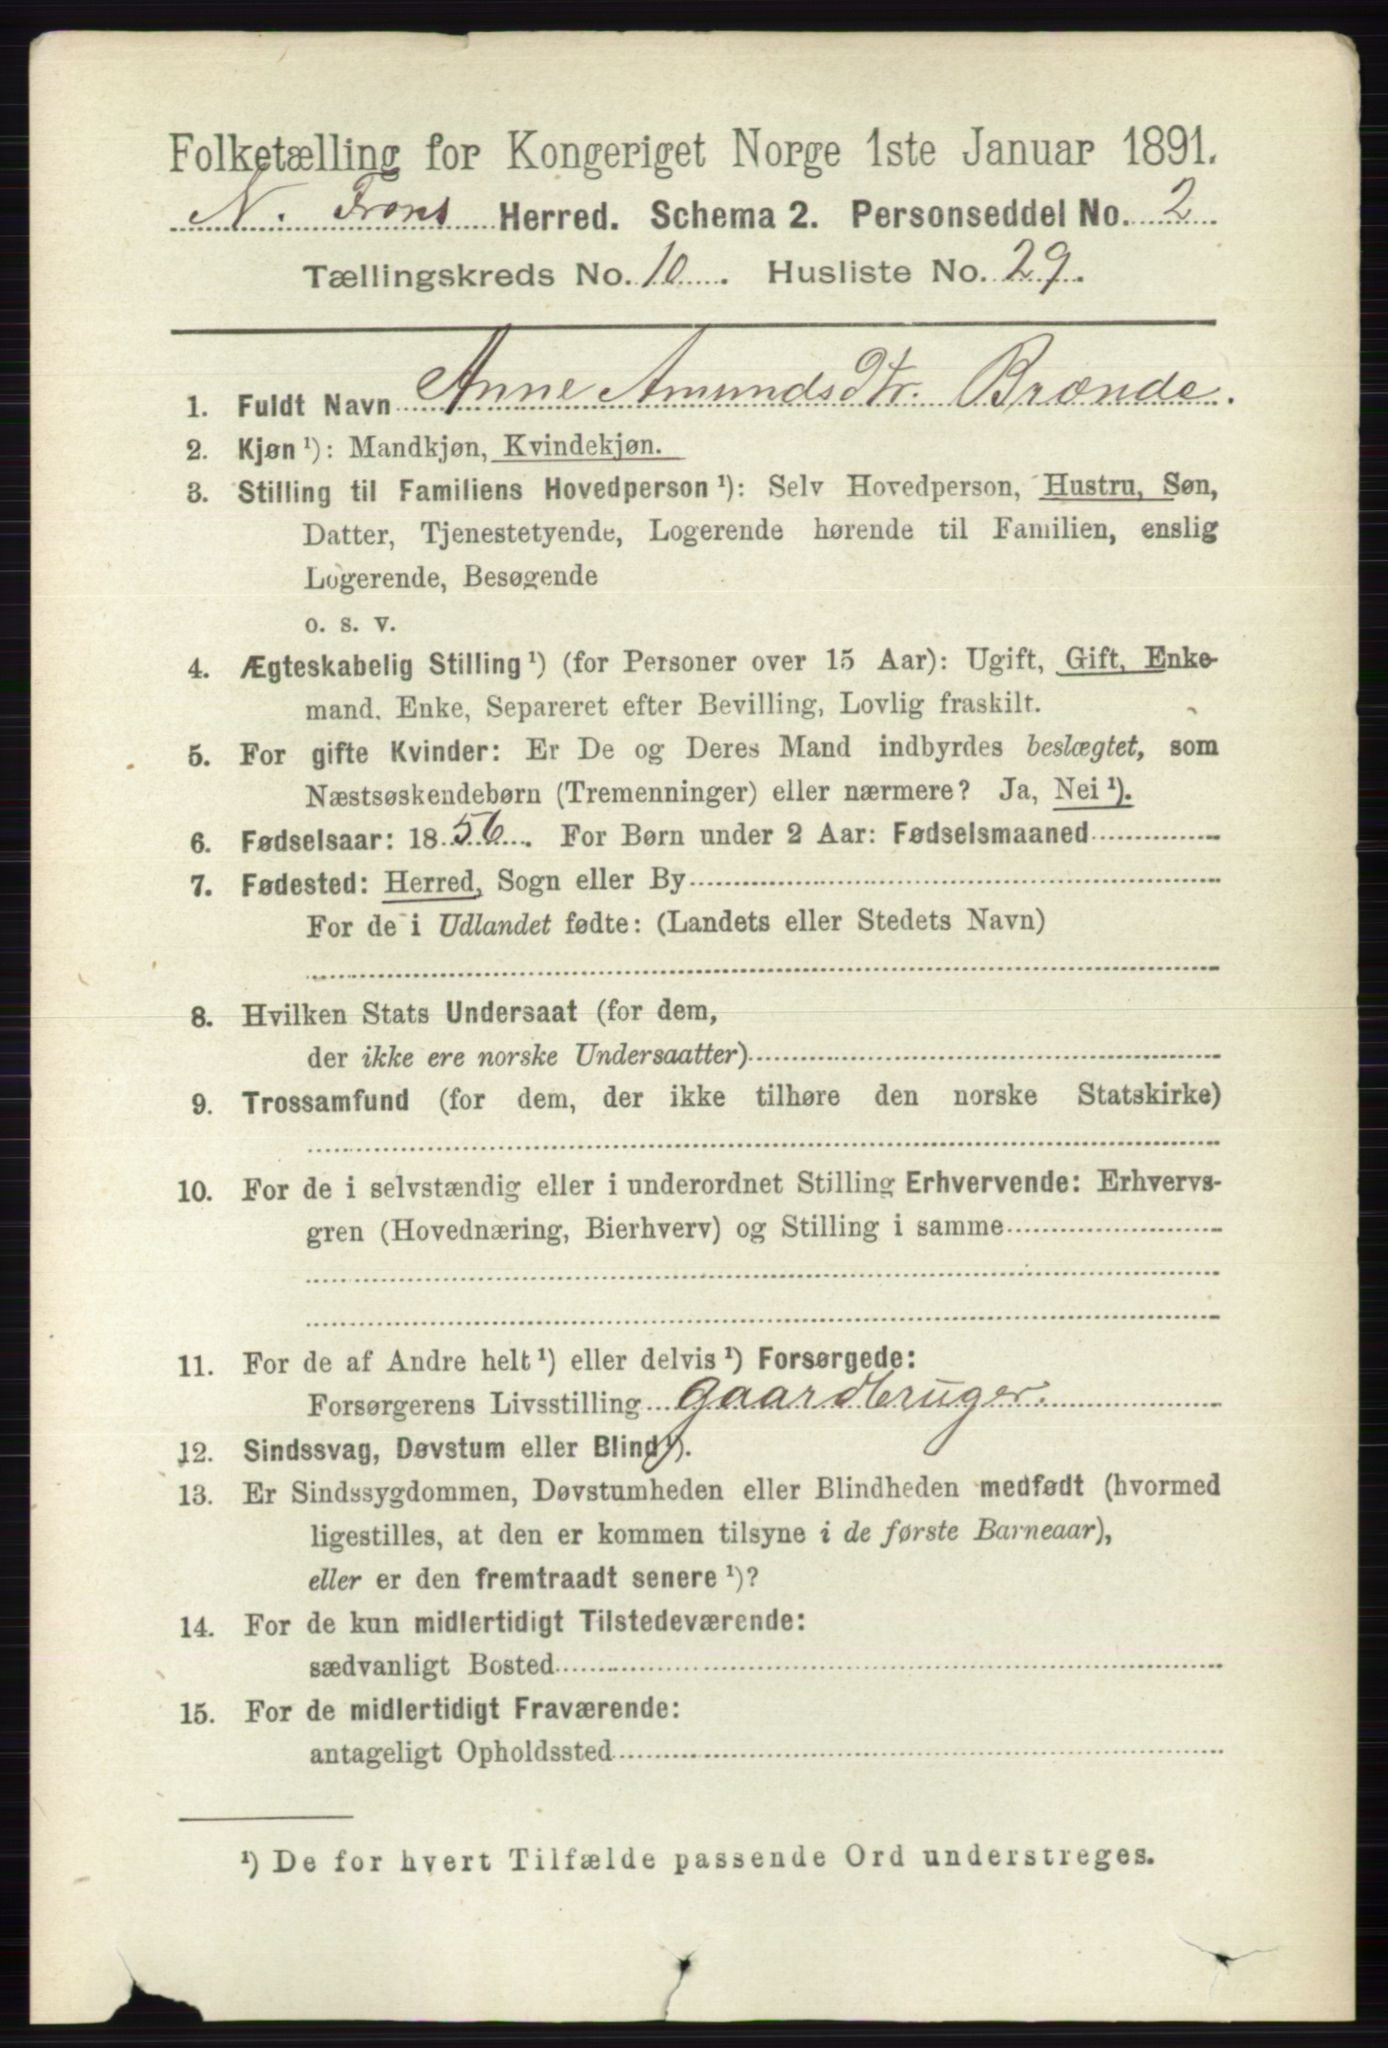 Folketælling for Kongeriget Norge 1ste Januar 1891.
N. Frons Herred. Schema 2. Personseddel No. 2
Tællingskreds No. 10. Husliste No. 29.
1. Fuldt Navn Anne Amundsdtr. Brænde.
2. Kjøn ¹): Mandkjøn, Kvindekjøn.
3. Stilling til Familiens Hovedperson ¹): Selv Hovedperson, Hustru, Søn,
Datter, Tjenestetyende, Logerende hørende til Familien, enslig
Logerende, Besøgende
o. s. v.
4. Ægteskabelig Stilling ¹) (for Personer over 15 Aar): Ugift, Gift, Enke-
mand, Enke, Separeret efter Bevilling, Lovlig fraskilt.
5. For gifte Kvinder: Er De og Deres Mand indbyrdes beslægtet, som
Næstsøskendebørn (Tremenninger) eller nærmere? Ja, Nei ¹).
6. Fødselsaar: 1856. For Børn under 2 Aar: Fødselsmaaned
7. Fødested: Herred, Sogn eller By
For de i Udlandet fødte: (Landets eller Stedets Navn)
8. Hvilken Stats Undersaat (for dem,
der ikke ere norske Undersaatter)
9. Trossamfund (for dem, der ikke tilhøre den norske Statskirke)
10. For de i selvstændig eller i underordnet Stilling Erhvervende: Erhvervs-
gren (Hovednæring, Bierhverv) og Stilling i samme
11. For de af Andre helt ¹) eller delvis ¹) Forsørgede:
Forsørgerens Livsstilling Gaardbruger.
12. Sindssvag, Døvstum eller Blind ¹).
13. Er Sindssygdommen, Døvstumheden eller Blindheden medfødt (hvormed
ligestilles, at den er kommen tilsyne i de første Barneaar),
eller er den fremtraadt senere ¹)?
14. For de kun midlertidigt Tilstedeværende:
sædvanligt Bosted
15. For de midlertidigt Fraværende:
antageligt Opholdssted
¹) De for hvert Tilfælde passende Ord understreges.